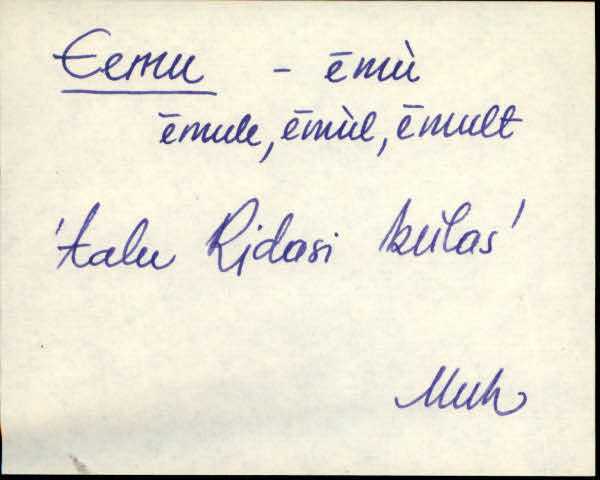 Eemu - ēmù
ēmule, ēmùl, ēmult
'talu Ridasi külas'
Muh